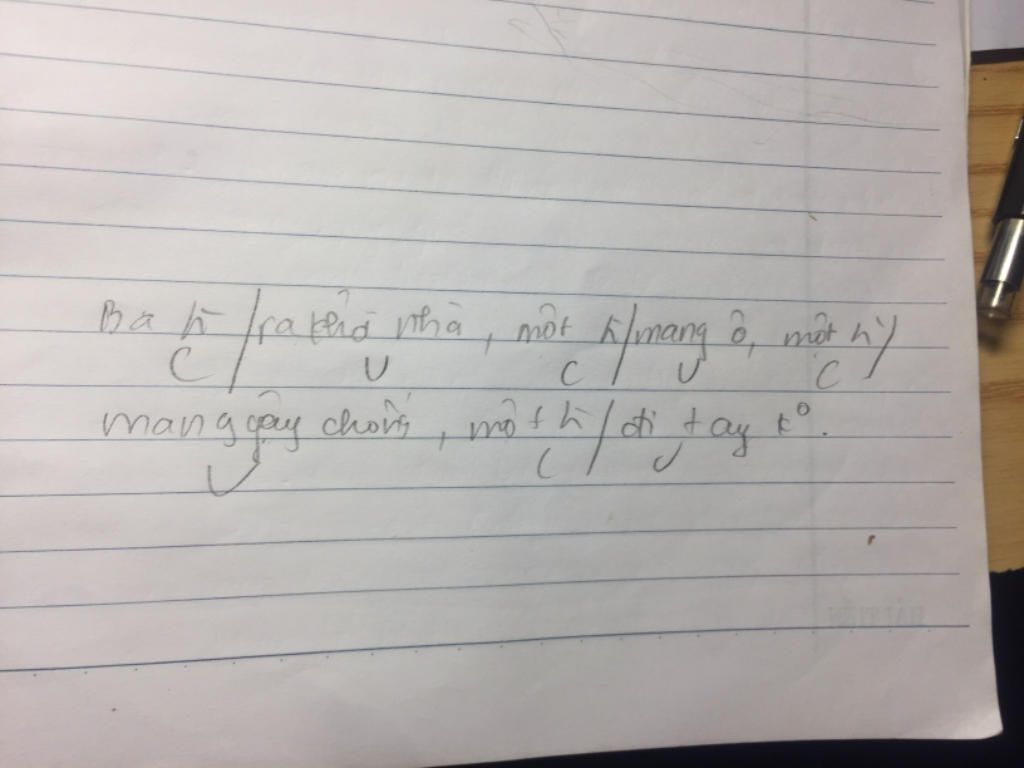 Ba h̀ / ra khỏi nhà, một h̀ / mang ô, một h̀ /
C V C V C
mang gậy chống, một h̀ / đi tay k°.
V C V